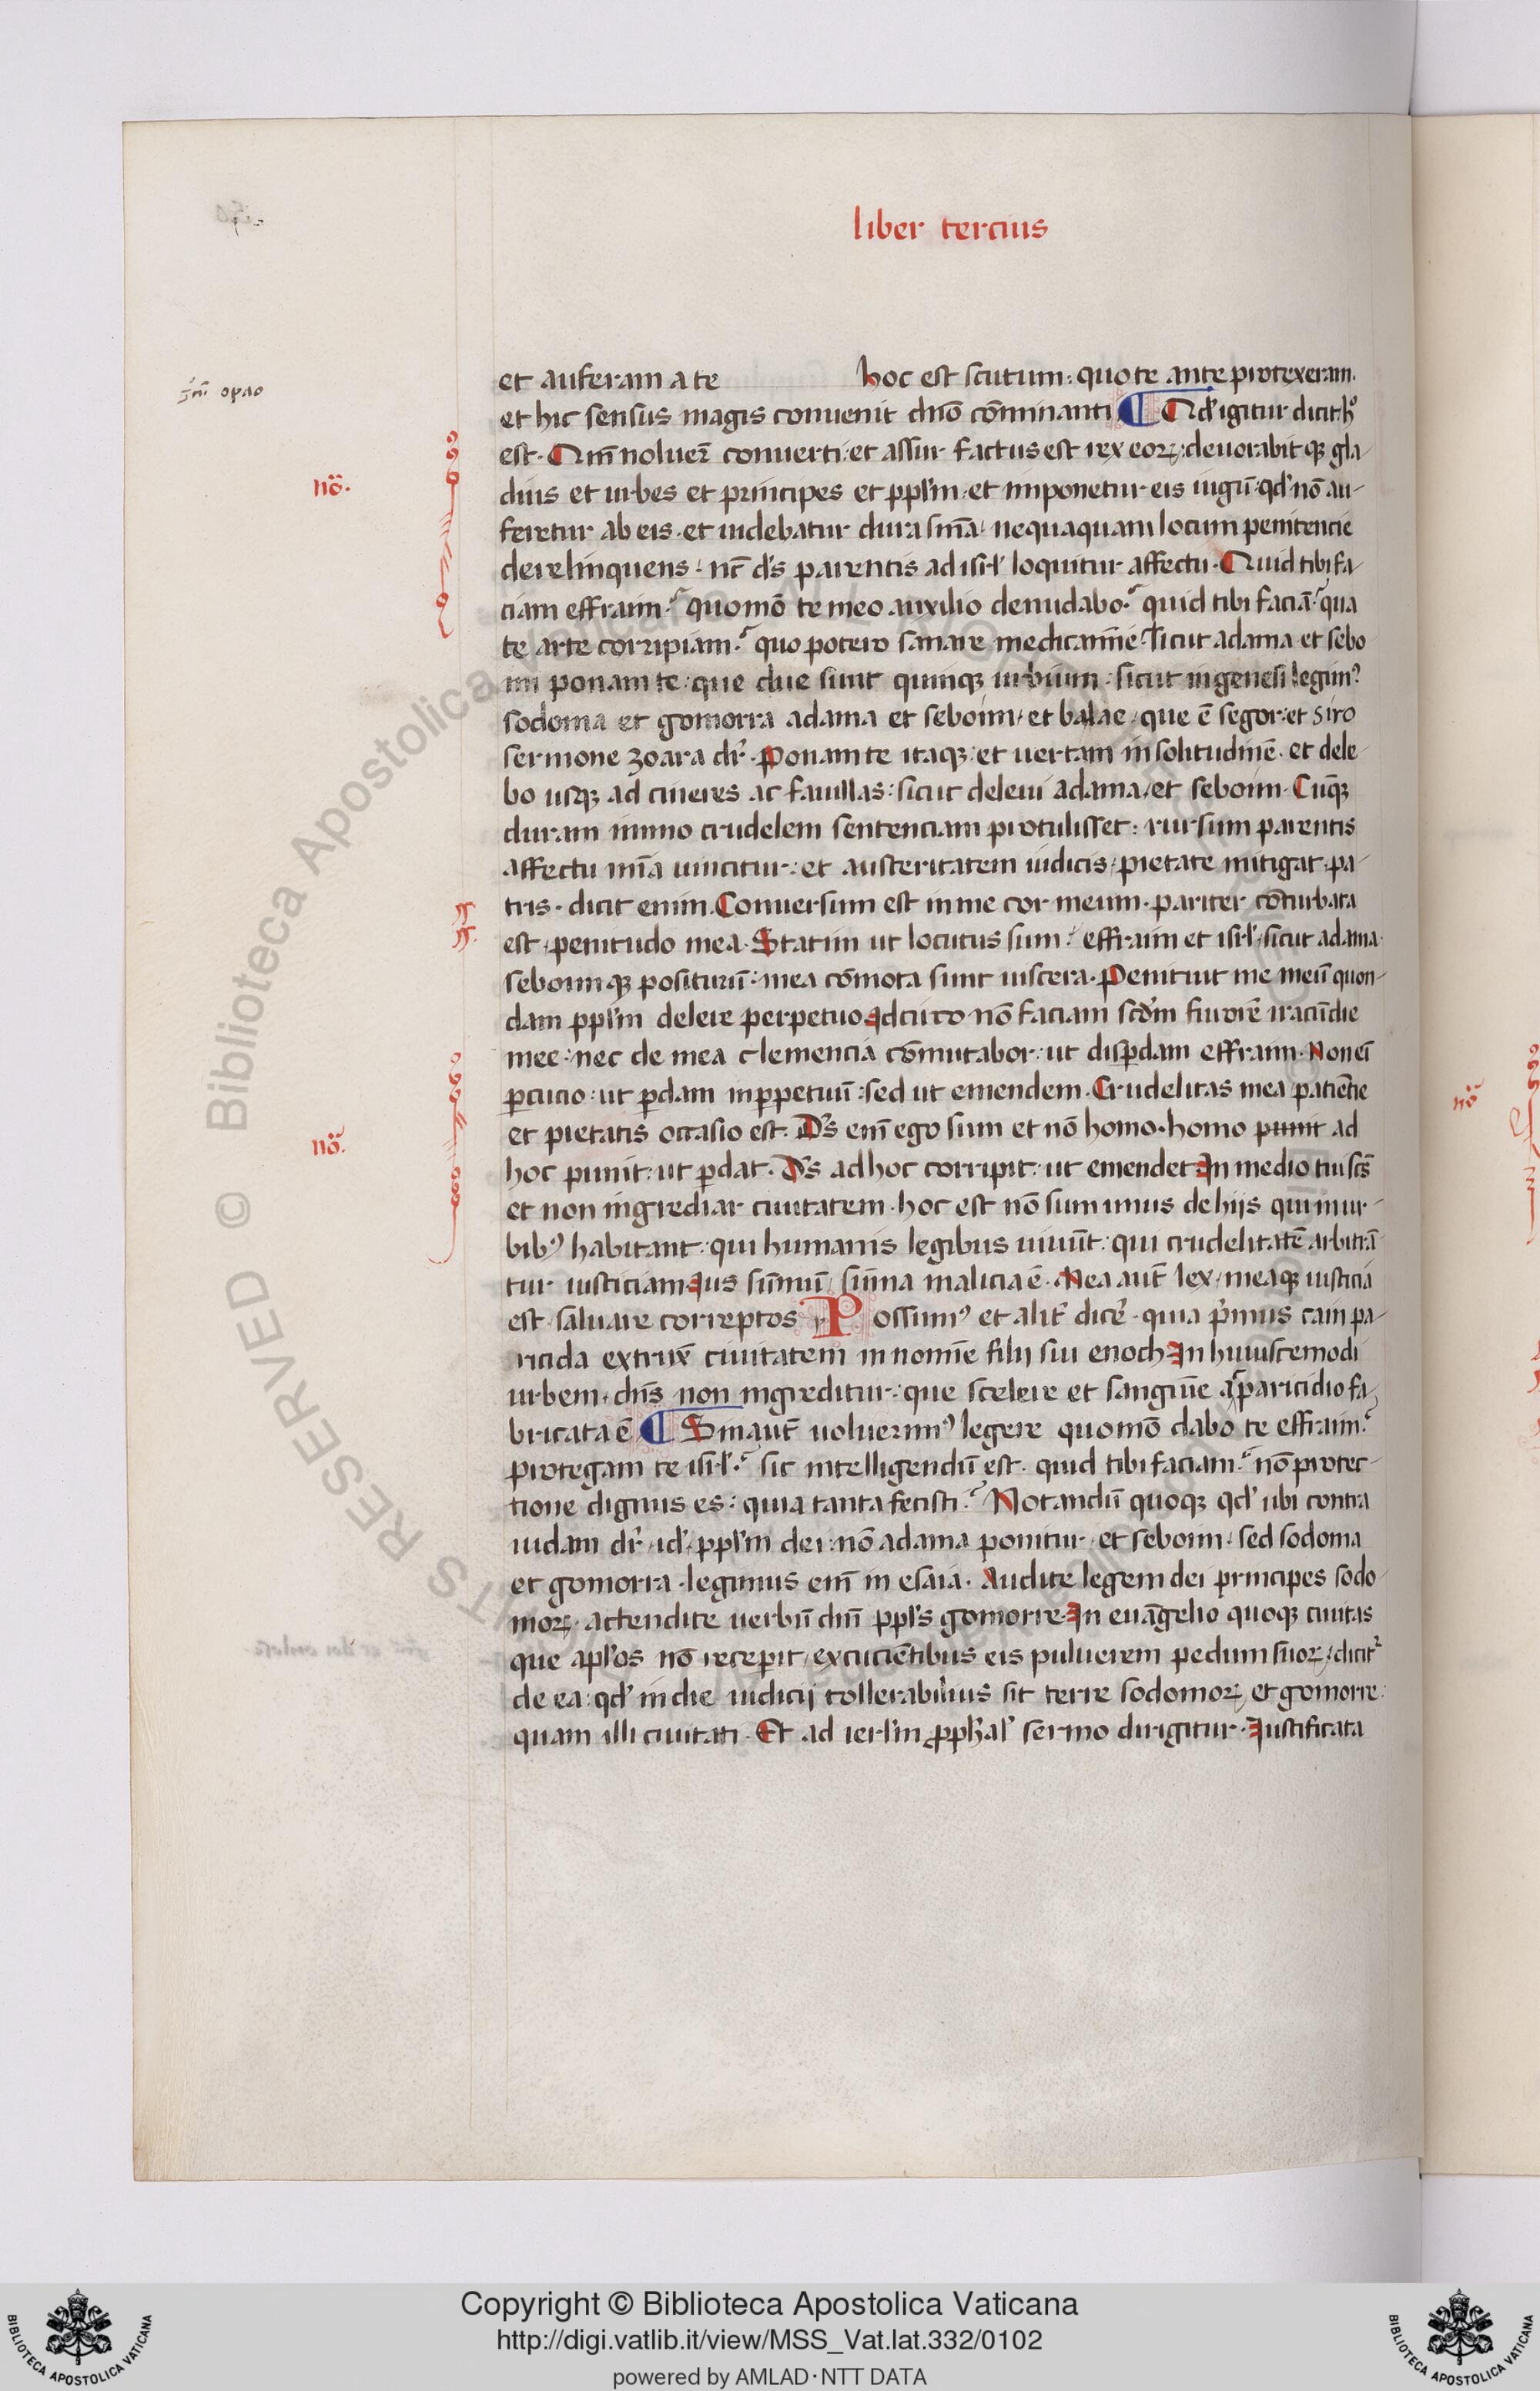 liber tercius
et auferam a te hoc est scutum: quo te ante protexeram.
et hic sensus magis conuenit dn̄o cōminanti Qd' igitur dicit h°
est. Qm̄ noluer̄ conuerti: et assur factus est rex eoꝝ: deuorabit qꝫ gla-
dius et urbes et principes et ppl'm: et imponetur eis iugū qd' nō au-
feretur ab eis. et uidebatur dura sn̄ia: nequaquam locum penitencie
derelinquens: nc̄ d's parentis ad isrl' loquitur affectu. Quid tibi fa-
ciam effraim? quomō te meo auxilio denudabo? quid tibi faciā? qua
te arte corripiam? quo potero sanare medicamīe? Sicut adama et sebo
im ponam te: que due sunt quinqꝫ urbium: sicut in genesi legimꝰ
sodoma et gomorra adama et seboim, et balae, que ē segor: et siro
sermone zoara dr̄. Ponam te itaqꝫ et uertam in solitudinē. et dele-
bo usqꝫ ad cineres ac fauillas: sicut deleui adama, et seboim. Cūqꝫ
duram immo crudelem sentenciam protulisset: rursum parentis
affectu mīa uincitur: et austeritatem iudicis, pietate mitigat pa-
tris. dicit enim. Conuersum est in me cor meum. pariter cōturbata
est, penitudo mea. Statim ut locutus sum: effraim et isrl', sicut adama
seboimqꝫ positurū: mea cōmota sunt uiscera. Penituit me meū quon-
dam ppl'm delere perpetuo Idcirco nō faciam scd'm furorē iracūdie
mee: nec de mea clemencia cōmutabor: ut disꝑdam effraim. Non eī
ꝑcucio: ut ꝑdam in ꝑpetuū: sed ut emendem. Crudelitas mea, patiētie
et pietatis occasio est. D's em̄ ego sum et nō homo. homo punit ad
hoc punit: ut ꝑdat. D's ad hoc corripit: ut emendet In medio tui sc̄s
et non ingrediar ciuitatem. hoc est nō sum unus de hijs qui in ur-
bibꝰ habitant: qui humanis legibus uiuūt: qui crudelitatē arbitrā
tur iusticiam Ius sūmū, sūma malicia ē. Mea aut̄ lex, meaqꝫ iusticia
est saluare correptos Possumꝰ et alit̄ dicē. quia p̄mus cain pa-
ricida extruxᵗ ciuitatem in nomīe filij sui enoch In huiuscemodi
urbem. dn̄s non ingreditur: que scelere et sanguīe a paricidio fa-
bricata ē Sin aut̄ uoluerimꝰ legere quomō dabo te effraim?
protegam te isrl'? sic intelligendū est. quid tibi faciam? nō protec-
tione dignus es: quia tanta fecisti? Notandū quoqꝫ qd' ubi contra
iudam dr̄ id', ppl'm dei: nō adama ponitur et seboim, sed sodoma
et gomorra. legimus em̄ in esaia. Audite legem dei principes sodo
moꝝ. attendite uerbū dn̄i ppl's gomorre. In euāgelio quoqꝫ ciuitas
que apl'os nō recepit, excuciētibus eis puluerem pedum suoꝝ, dicit̄
de ea: qd' in die iudicij tollerabilius sit terre sodomoꝝ et gomorre:
quam illi ciuitati. Et ad ierl'm ꝓph'al' sermo dirigitur. Iustificata
nō.
nō.
nō
Copyright © Biblioteca Apostolica Vaticana
http://digi.vatlib.it/view/MSS_Vat.lat.332/0102
powered by AMLAD · NTT DATA
BIBLIOTECA APOSTOLICA VATICANA
BIBLIOTECA APOSTOLICA VATICANA